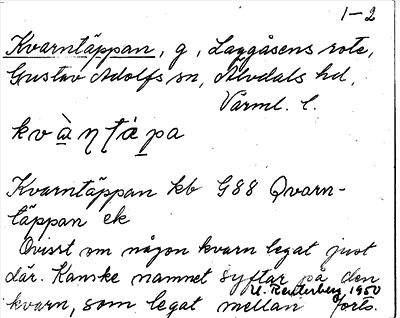 1-2
Kvarntäppan, g, Laggåsens rote,
Gustav Adolfs sn, Älvdals hd,
Värml. l.
kvàṇṭápa
Kvarntäppan kb G88 Qvarn-
täppan ek
Ovisst om någon kvarn legat just
där. Kanske namnet syftar på den
kvarn, som legat mellan forts.
U. Reuterberg 1950